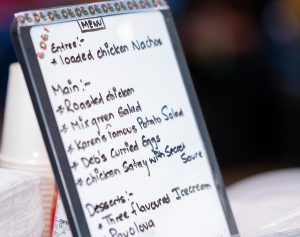 MENU
Entree:-
* loaded chicken Nachos
Main:-
* Roasted chicken
* Mix green Salad
* Karen's famous Potato Salad
* Deb's Curried Eggs
* chicken Satey with Secret
Sauce
Desserts:-
* Three flavoured Icecream
* Pavolova